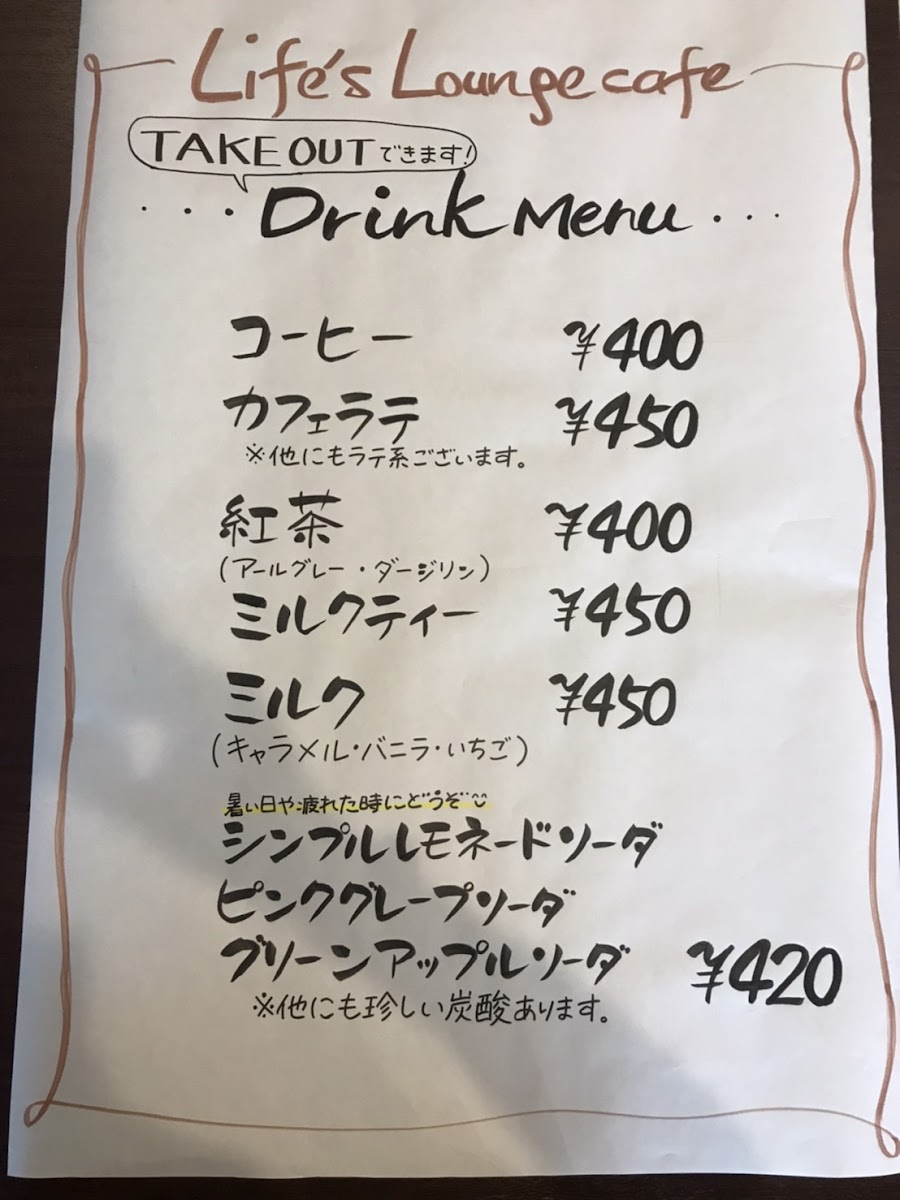 Life's Lounge cafe
TAKE OUTできます!
・・・Drink Menu・・・
コーヒー ¥400
カフェラテ ¥450
※他にもラテ系ございます。
紅茶 ¥400
(アールグレー・ダージリン)
ミルクティー ¥450
ミルク ¥450
(キャラメル・バニラ・いちご)
暑い日や疲れた時にどうぞ
シンプルレモネードソーダ
ピンクグレープソーダ
グリーンアップルソーダ ¥420
※他にも珍しい炭酸あります。